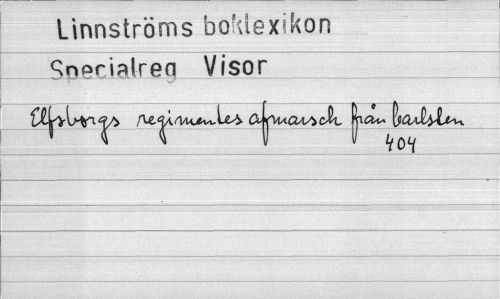 Linnströms boklexikon
Specialreg Visor
Elfsborgs regimentes afmarsch från Carlsten
404